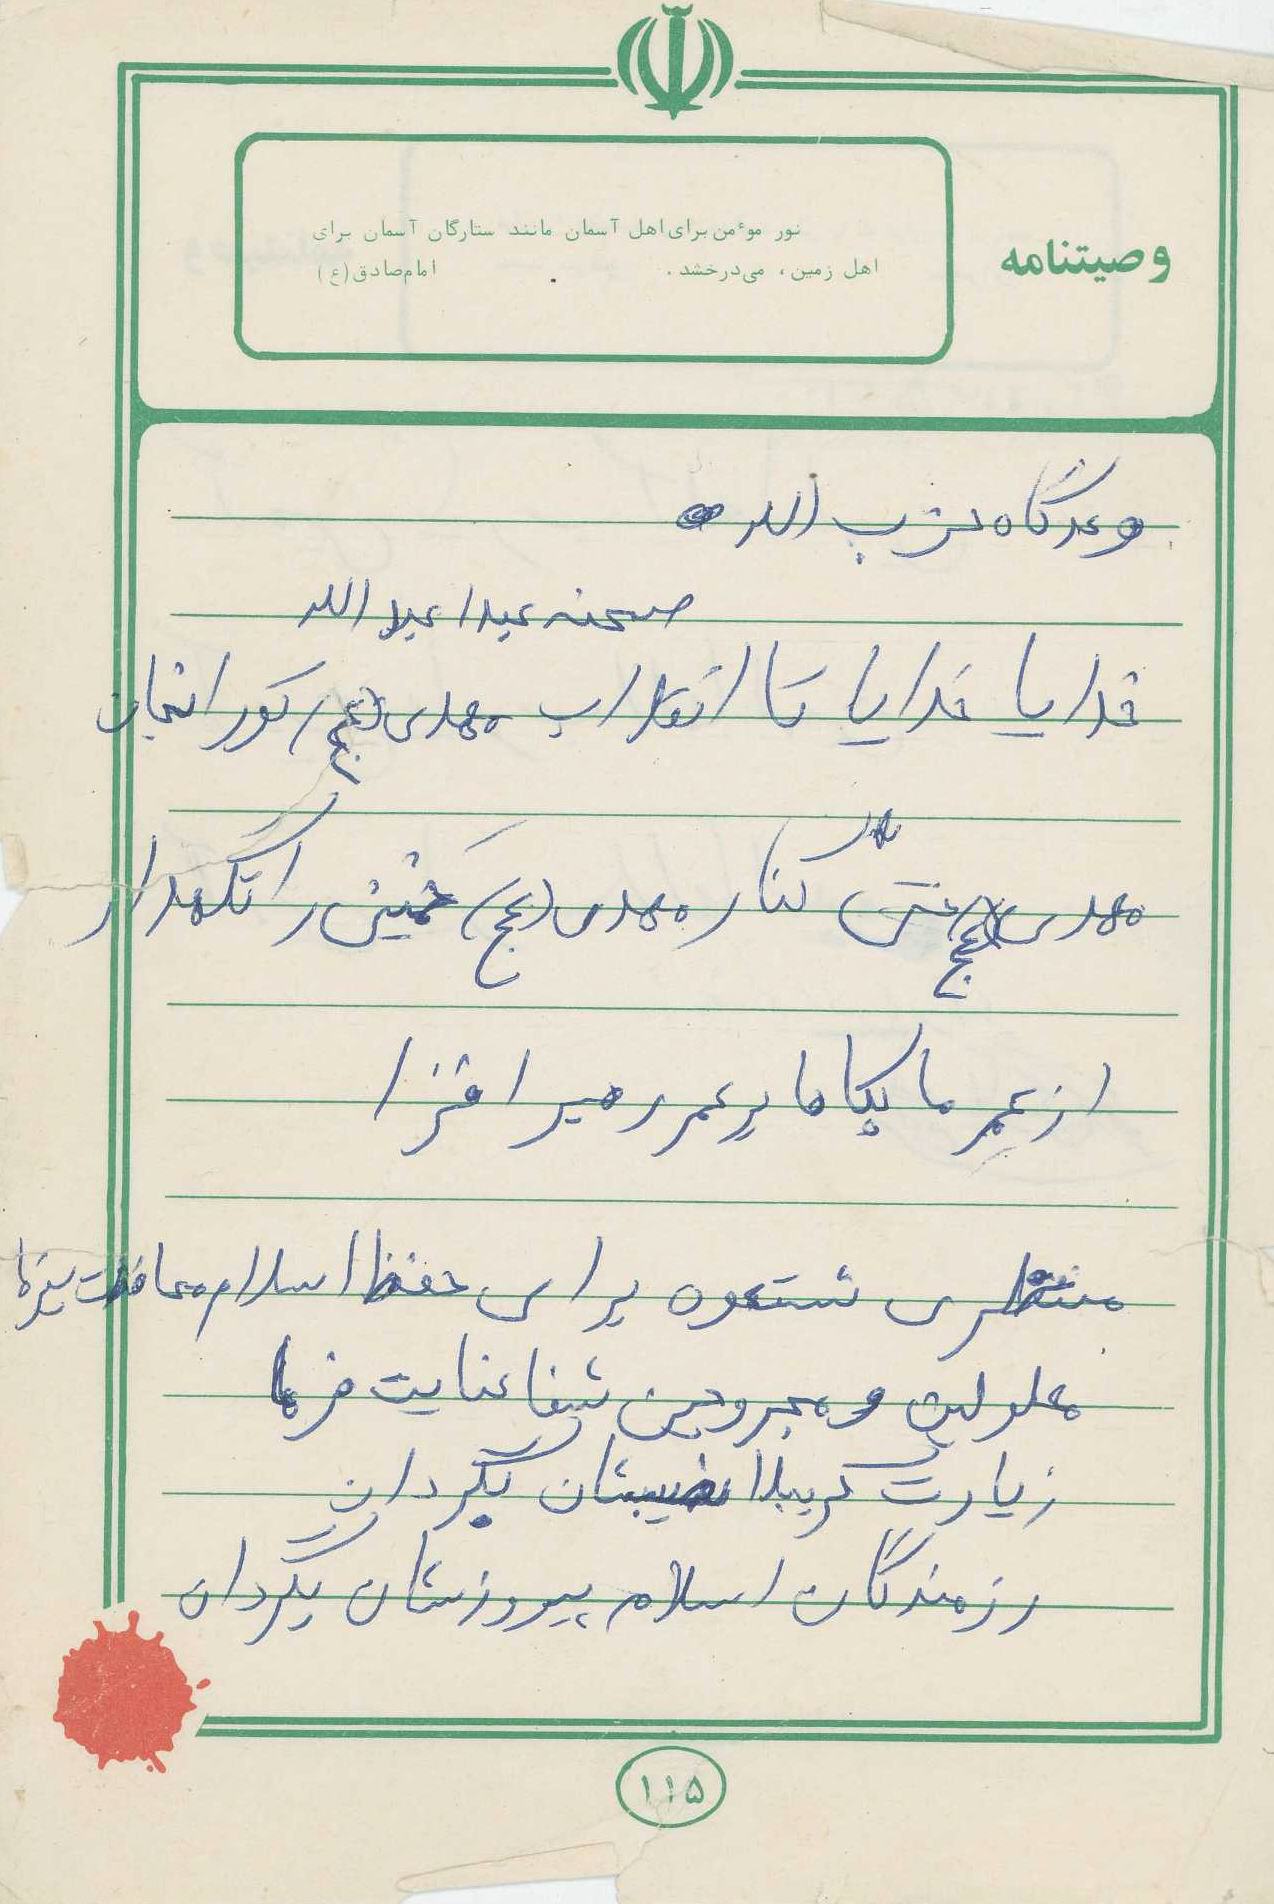 وصیتنامه
نور موءمن برای اهل آسمان مانند ستارگان آسمان برای
اهل زمین، می‌درخشد. امام صادق (ع)
وعدگاه حزب الله
صحنه عبدا عبد الله
خدایا خدایا تا انقلاب مهدی (عج)
مهدی (عج) حتی کنار مهدی (عج) خمینی را نگهدار
از عمر ما بکاه ما بر عمر رهبر افزا
منتظری نستوه برای حفظ اسلام محافظت بفرما
معلولین و مجروحین شفا عنایت فرما
زیارت کربلا نصیبشان بگردان
رزمندگان اسلام پیروزشان بگردان
۱۱۵